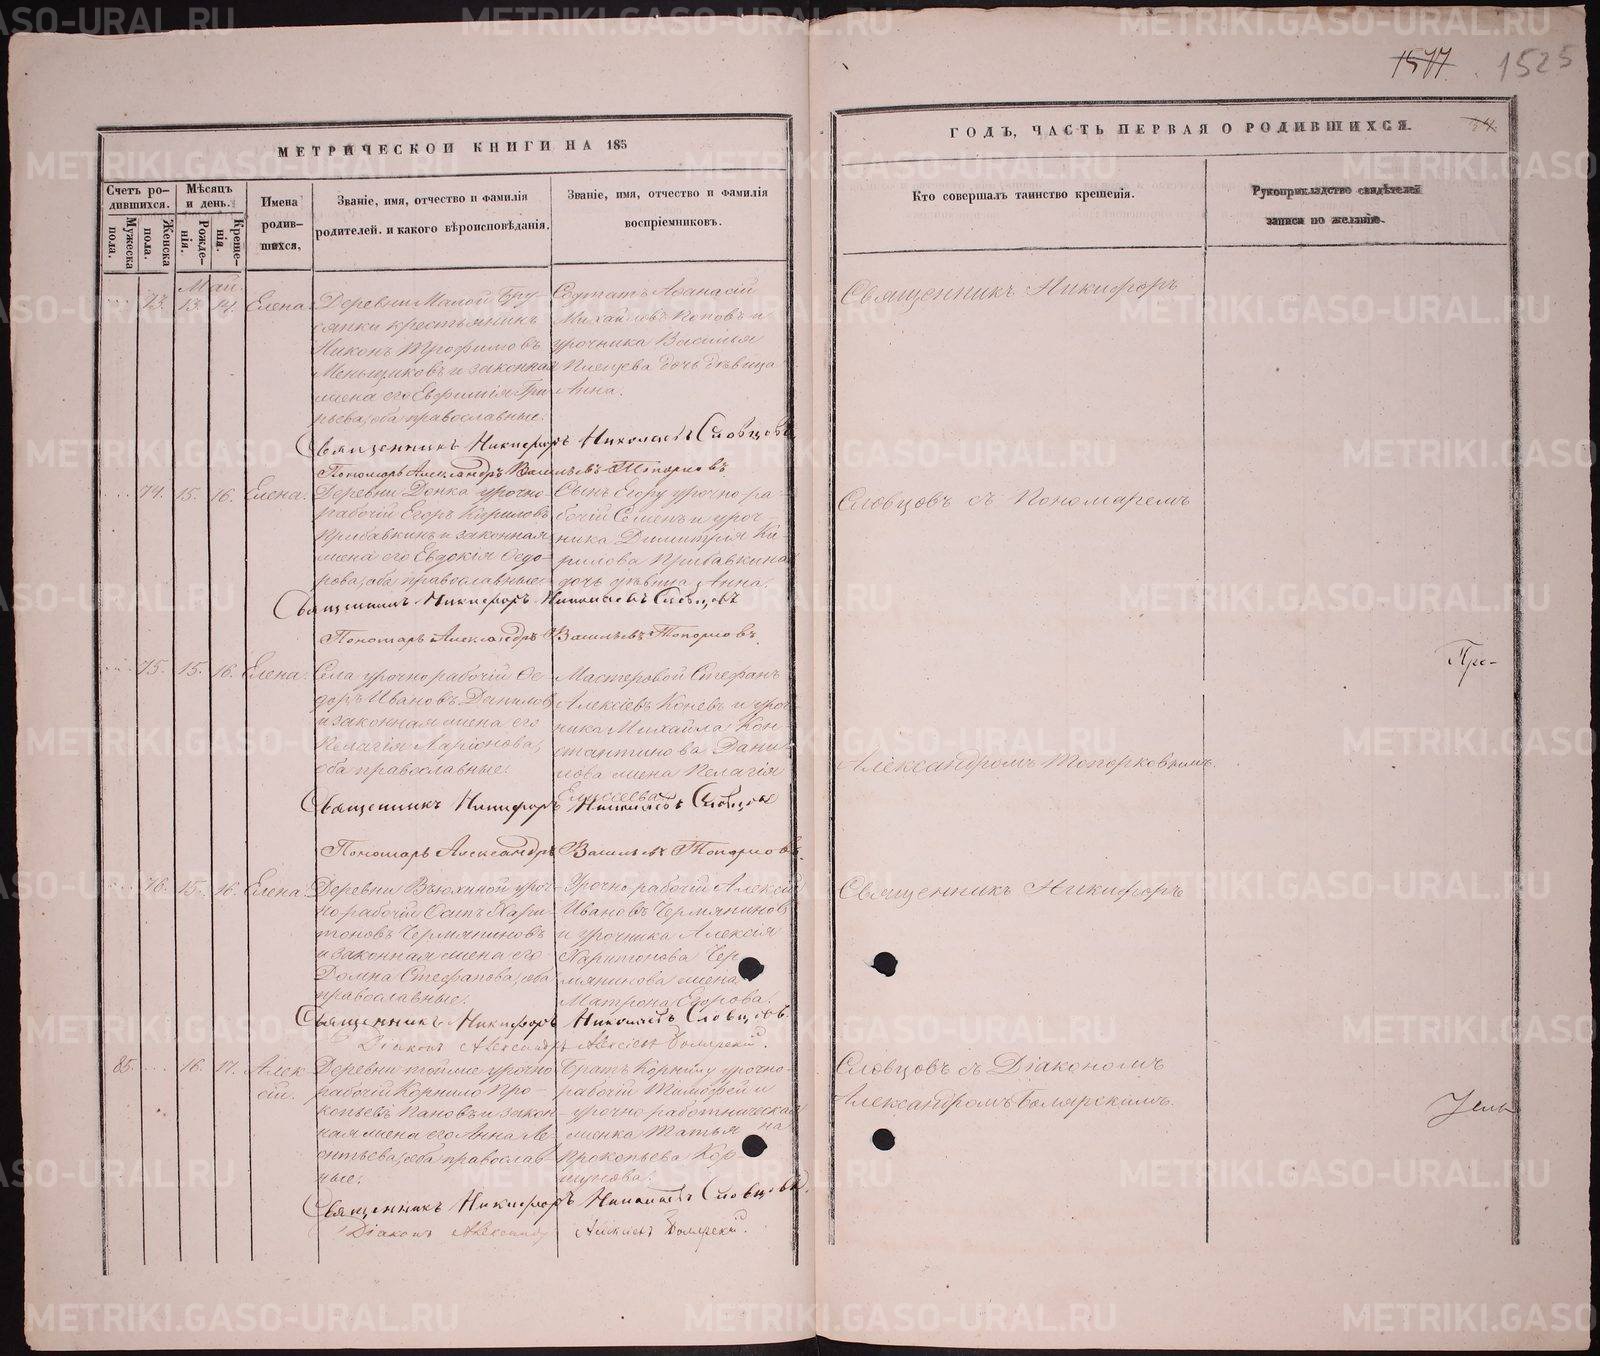 1577 1525
МЕТРИЧЕСКОЙ КНИГИ НА 185
ГОДЪ, ЧАСТЬ ПЕРВАЯ О РОДИВШИХСЯ.
Счетъ ро-
дившихся.
Мужеска пола.
Женска пола.
Мѣсяцъ
и день.
Рожде-
нія.
Креще-
нія.
Имена
родив-
шихся.
Званіе, имя, отчество и фамилія
родителей. и какого вѣроисповѣданія.
Званіе, имя, отчество и фамилія
воспріемниковъ.
Кто совершалъ таинство крещенія.
Рукоприкладство свидѣтелей
записи по желанію.
Май.
73. 13. 14. Елена.
Деревни Малой Бру-
сянки крестьянинъ
Никонъ Трофимовъ
Меньщиковъ и законная
жена его Евфимія
оба православные.
Солдатъ Афанасій
Михайловъ Поповъ и
урочника Василья
дочь дѣвица
Анна.
Священникъ Никифоръ Николаевъ Словцовъ
Пономарь Александръ Васильевъ Топорковъ
74. 15. 16. Елена.
Деревни Донка урочно-
рабочій Егоръ Кириловъ
Прибавкинъ и законная
жена его Евдокія Ѳедо-
рова, оба православные.
Сынъ Егору урочно ра-
бочій Семенъ и уроч-
ника Димитрія Ки-
рилова Прибавкина
дочь дѣвица Анна.
Священникъ Никифоръ Николаевъ Словцовъ
Пономарь Александръ Васильевъ Топорковъ
75. 15. 16. Елена.
Села урочно рабочій Ѳе-
доръ Ивановъ Даниловъ
и законная жена его
Пелагія Ларіонова,
оба православные.
Мастеровой Стефанъ
Алексіевъ Коневъ и уроч-
ника Михайла Кон-
стантинова Дани-
лова жена Пелагія
Елисеева.
Священникъ Никифоръ Николаевъ Словцовъ
Пономарь Александръ Васильевъ Топорковъ.
76. 15. 16. Елена.
Деревни Вьюхиной уроч-
но рабочій Осипъ Хари-
тоновъ Чермяниновъ
и законная жена его
Домна Стефанова, оба
православные.
Урочно рабочій Алексій
Ивановъ Чермяниновъ
и урочника Алексія
Харитонова Чер-
мянинова жена
Матрона Егорова.
Священникъ Никифоръ Николаевъ Словцовъ.
Діаконъ Александръ Алексіевъ Боярскій.
85. 16. 17. Алек-
сій.
Деревни тойже урочно
рабочій Корнило Про-
копьевъ Пановъ и закон-
ная жена его Анна Ле-
онтьева, оба православ-
ные.
Братъ Корнилу урочно-
рабочій Тимофей и
урочно работническая
женка Татьяна
Прокопьева Кор-
шунова.
Священникъ Никифоръ Николаевъ Словцовъ.
Діаконъ Александръ Алексіевъ Боярскій.
Священникъ Никифоръ
Словцовъ съ Пономаремъ
Александромъ Топорковымъ.
Священникъ Никифоръ
Словцовъ съ Діакономъ
Александромъ Боярскимъ.
METRIKI.GASO-URAL.RU